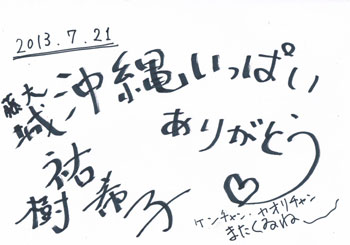 2013.7.21
沖縄いっぱい
ありがとう
大城
藤
祐希子
樹
ケンチャン、カオリチャン
またくるねー